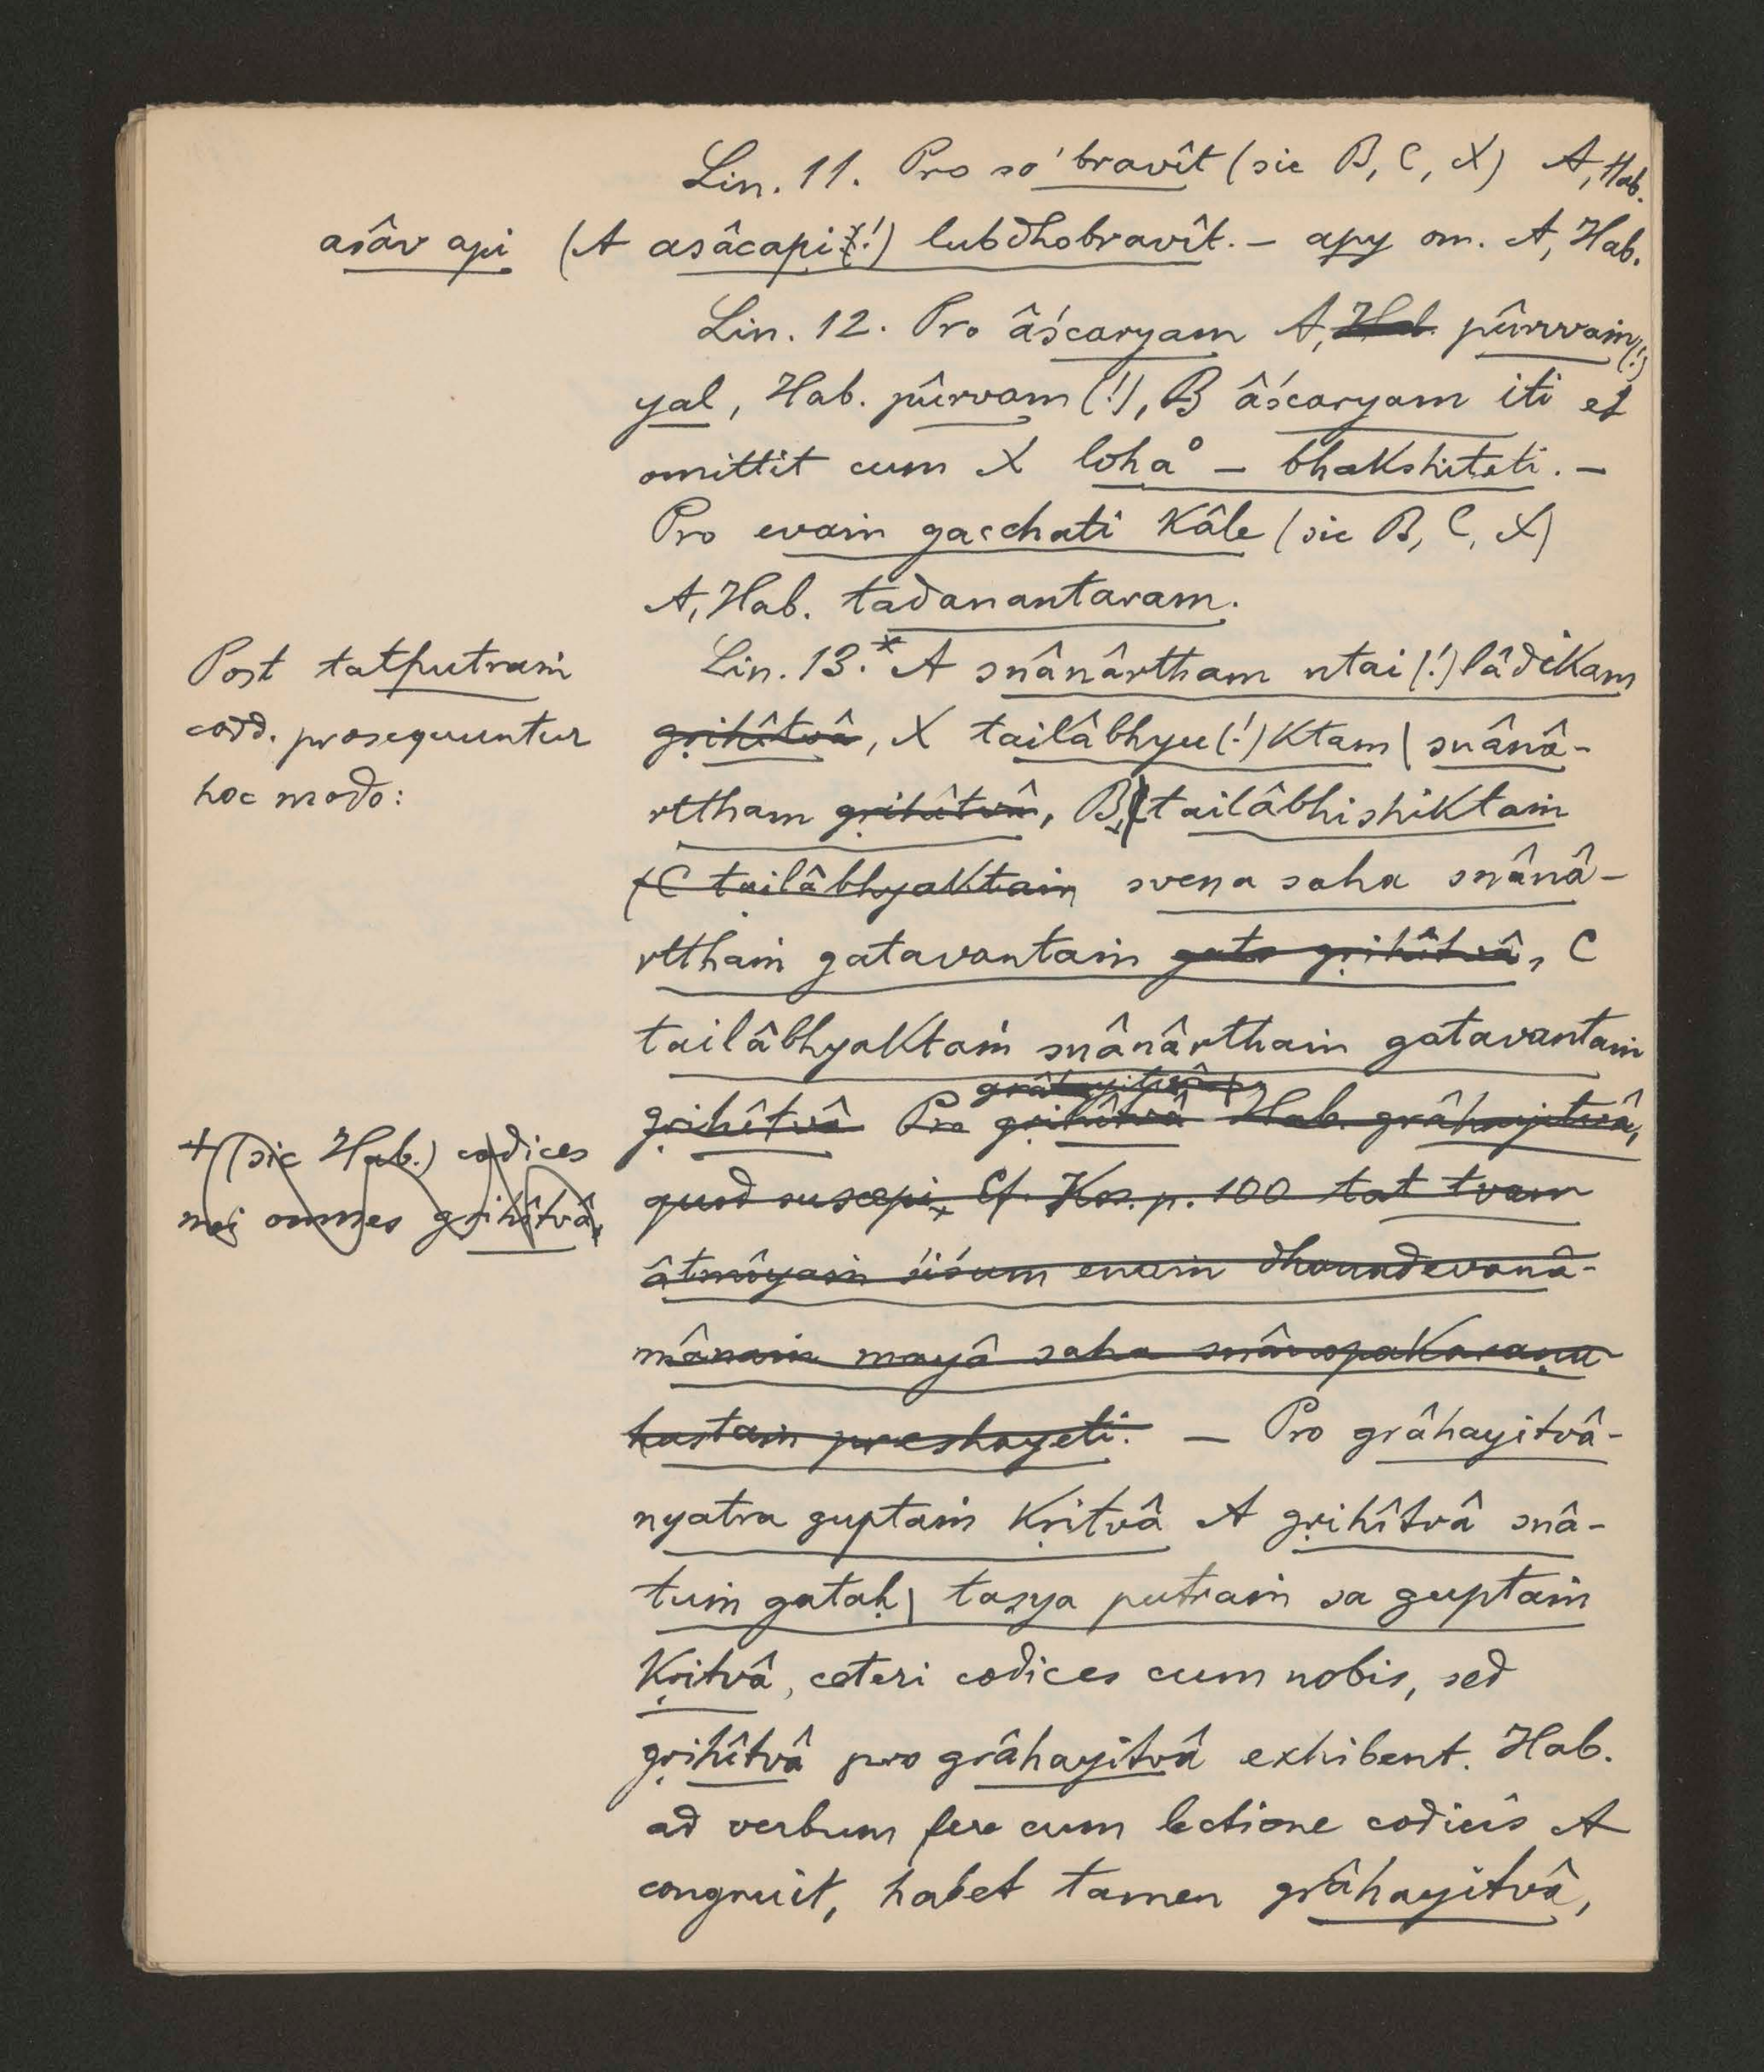 Lin. 11. Pro so 'bravît (sic B, C, X) A, Hab.
asâv api (A asâcapi(!) lubdhobravît. – apy om. A, Hab.
Lin. 12. Pro âścaryam A, Hab. pûrvvaṁ(!)
yal, Hab. pûrvam (!), B âścaryam iti et
omittit cum X loha° – bhakshiteti. –
Pro evaṁ gacchati kâle (sic B, C, X)
A, Hab. tadanantaram.
Post tatputraṁ
codd. prosequuntur
hoc modo:
Lin. 13.* A snânârtham utai(!)lâdikam
gṛihîtvâ, X tailâbhyu(!)ktam | snânâ-
rttham gṛihîtvâ, B, tailâbhishiktaṁ
(C tailâbhyaktaṁ svena saha snânâ-
rtthaṁ gatavantaṁ gato gṛihîtvâ, C
tailâbhyaktaṁ snânârthaṁ gatavantaṁ
grâhayitvâ
gṛihîtvâ Pro gṛihîtvâ Hab. grâhayitvâ,
+ (sic Hab.) codices
mei omnes gṛihîtvâ.
quod suscepi + Cf. Kos. p. 100 tat tvam
âtmîyaṁ śiśum enaṁ dhanadevanâ-
mânaṁ mayâ saha snânopakaraṇa
hastaṁ preshayeti. – Pro grâhayitvâ-
nyatra guptaṁ kṛitvâ A gṛihîtvâ snâ-
tuṁ gataḥ | tasya putraṁ sa guptaṁ
kṛitvâ, ceteri codices cum nobis, sed
gṛihîtvâ pro grâhayitvâ exhibent. Hab.
ad verbum fere cum lectione codicis A
congruit, habet tamen grâhayitvâ,